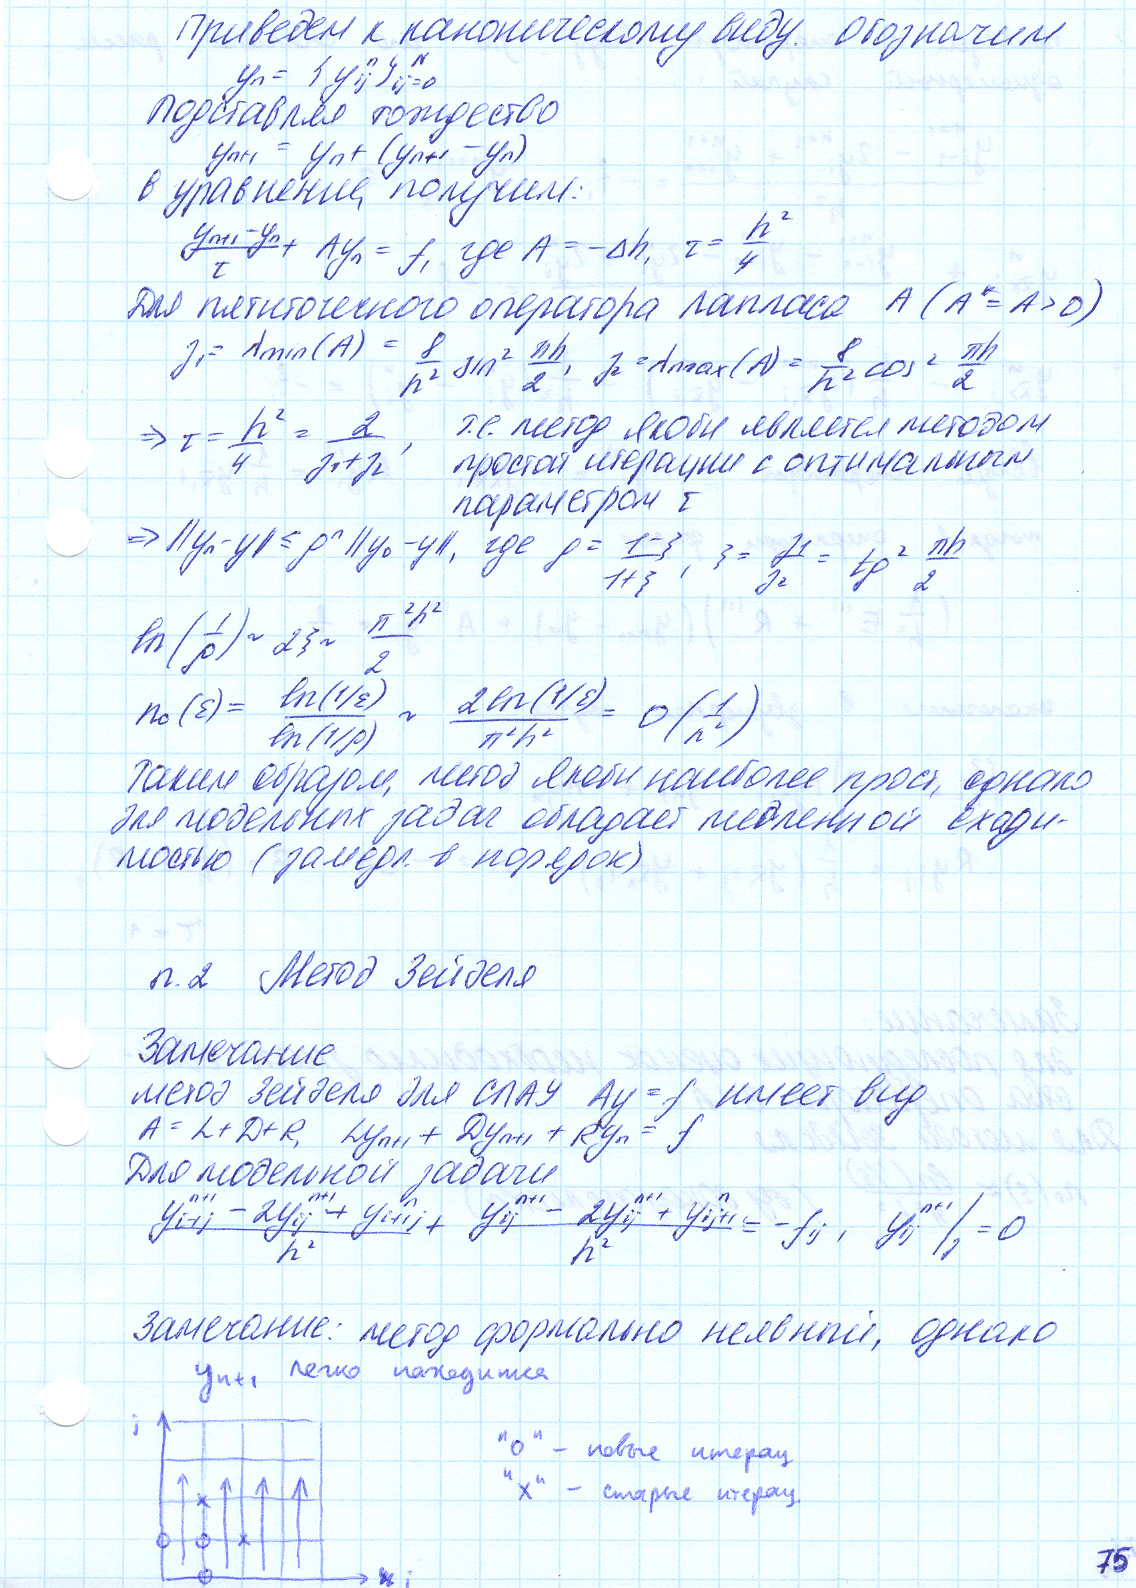 Приведем к каноническому виду. Обозначим
yₙ = {yᵢⱼⁿ}ᵢⱼ₌₀ᴺ
Подставляя тождество
yₙ₊₁ = yₙ + (yₙ₊₁ - yₙ)
в уравнение, получим:
(yₙ₊₁ - yₙ)/τ + Ayₙ = f, где A = -Δh, τ = h²/4
Для пятиточечного оператора Лапласа A (A* = A > 0)
γ₁ = λmin(A) = 8/h² sin² πh/2, γ₂ = λmax(A) = 8/h² cos² πh/2
⇒ τ = h²/4 = 2/(γ₁+γ₂), т.е. метод Якоби является методом
простой итерации с оптимальным
параметром τ
⇒ ||yₙ - y|| ≤ ρⁿ ||y₀ - y||, где ρ = (1-ξ)/(1+ξ), ξ = γ₁/γ₂ = tg² πh/2
ln(1/ρ) ~ 2ξ ~ π²h²/2
n₀(ε) = ln(1/ε)/ln(1/ρ) ~ 2ln(1/ε)/π²h² = O(1/h²)
Таким образом, метод Якоби наиболее прост, однако
для модельных задач обладает медленной сходи-
мостью (замедл. в порядок)
п.2 Метод Зейделя
Замечание
метод Зейделя для СЛАУ Ay = f имеет вид
A = L + D + R, Lyₙ₊₁ + Dyₙ₊₁ + Ryₙ = f
Для модельной задачи
(yᵢ₋₁ⱼⁿ⁺¹ - 2yᵢⱼⁿ⁺¹ + yᵢ₊₁ⱼⁿ)/h² + (yᵢⱼ₋₁ⁿ⁺¹ - 2yᵢⱼⁿ⁺¹ + yᵢⱼ₊₁ⁿ)/h² = -fᵢⱼ, yᵢⱼⁿ⁺¹|γ = 0
Замечание: метод формально неявный, однако
yₙ₊₁ легко находится
j
"o" - новые итерац.
"x" - старые итерац.
i
75